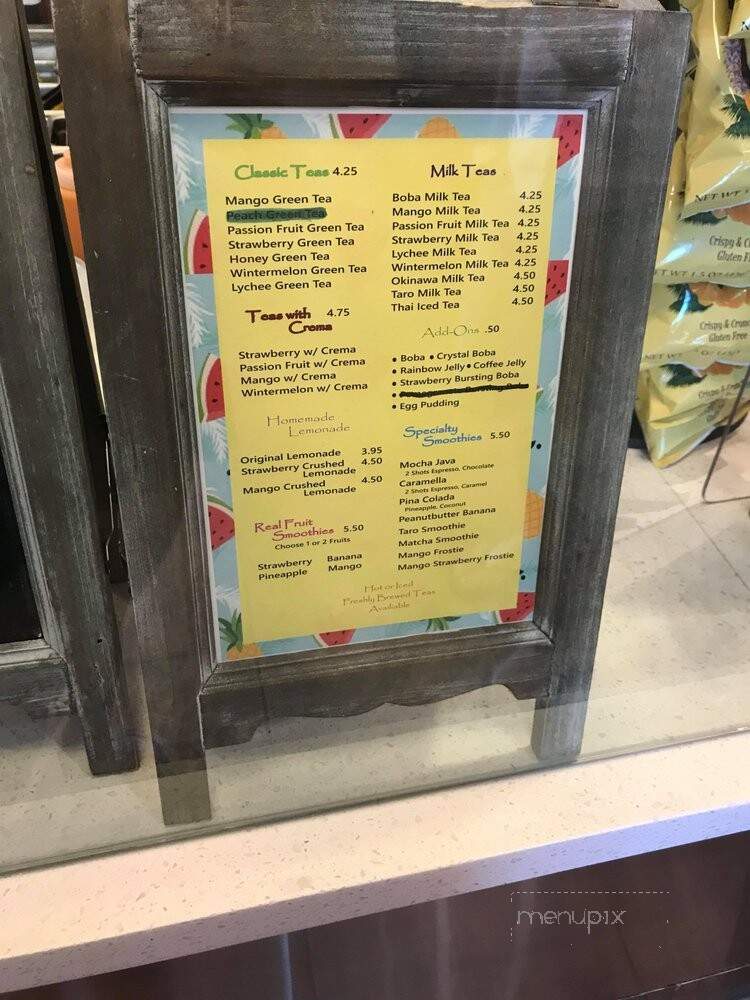 Classic Teas 4.25
Mango Green Tea
Peach Green Tea
Passion Fruit Green Tea
Strawberry Green Tea
Honey Green Tea
Wintermelon Green Tea
Lychee Green Tea
Teas with
Crema 4.75
Strawberry w/ Crema
Passion Fruit w/ Crema
Mango w/ Crema
Wintermelon w/ Crema
Homemade
Lemonade
Original Lemonade 3.95
Strawberry Crushed 4.50
Lemonade
Mango Crushed 4.50
Lemonade
Real Fruit
Smoothies 5.50
Choose 1 or 2 Fruits
Strawberry Banana
Pineapple Mango
Milk Teas
Boba Milk Tea 4.25
Mango Milk Tea 4.25
Passion Fruit Milk Tea 4.25
Strawberry Milk Tea 4.25
Lychee Milk Tea 4.25
Wintermelon Milk Tea 4.25
Okinawa Milk Tea 4.50
Taro Milk Tea 4.50
Thai Iced Tea 4.50
Add-Ons .50
• Boba • Crystal Boba
• Rainbow Jelly • Coffee Jelly
• Strawberry Bursting Boba
• Egg Pudding
Specialty
Smoothies 5.50
Mocha Java
2 Shots Espresso, Chocolate
Caramella
2 Shots Espresso, Caramel
Pina Colada
Pineapple, Coconut
Peanutbutter Banana
Taro Smoothie
Matcha Smoothie
Mango Frostie
Mango Strawberry Frostie
Hot or Iced
Freshly Brewed Teas
Available
NET WT
Crispy &
Gluten F
ET WT 1.5 OZ
Crispy & Crun
Gluten Free
menupix